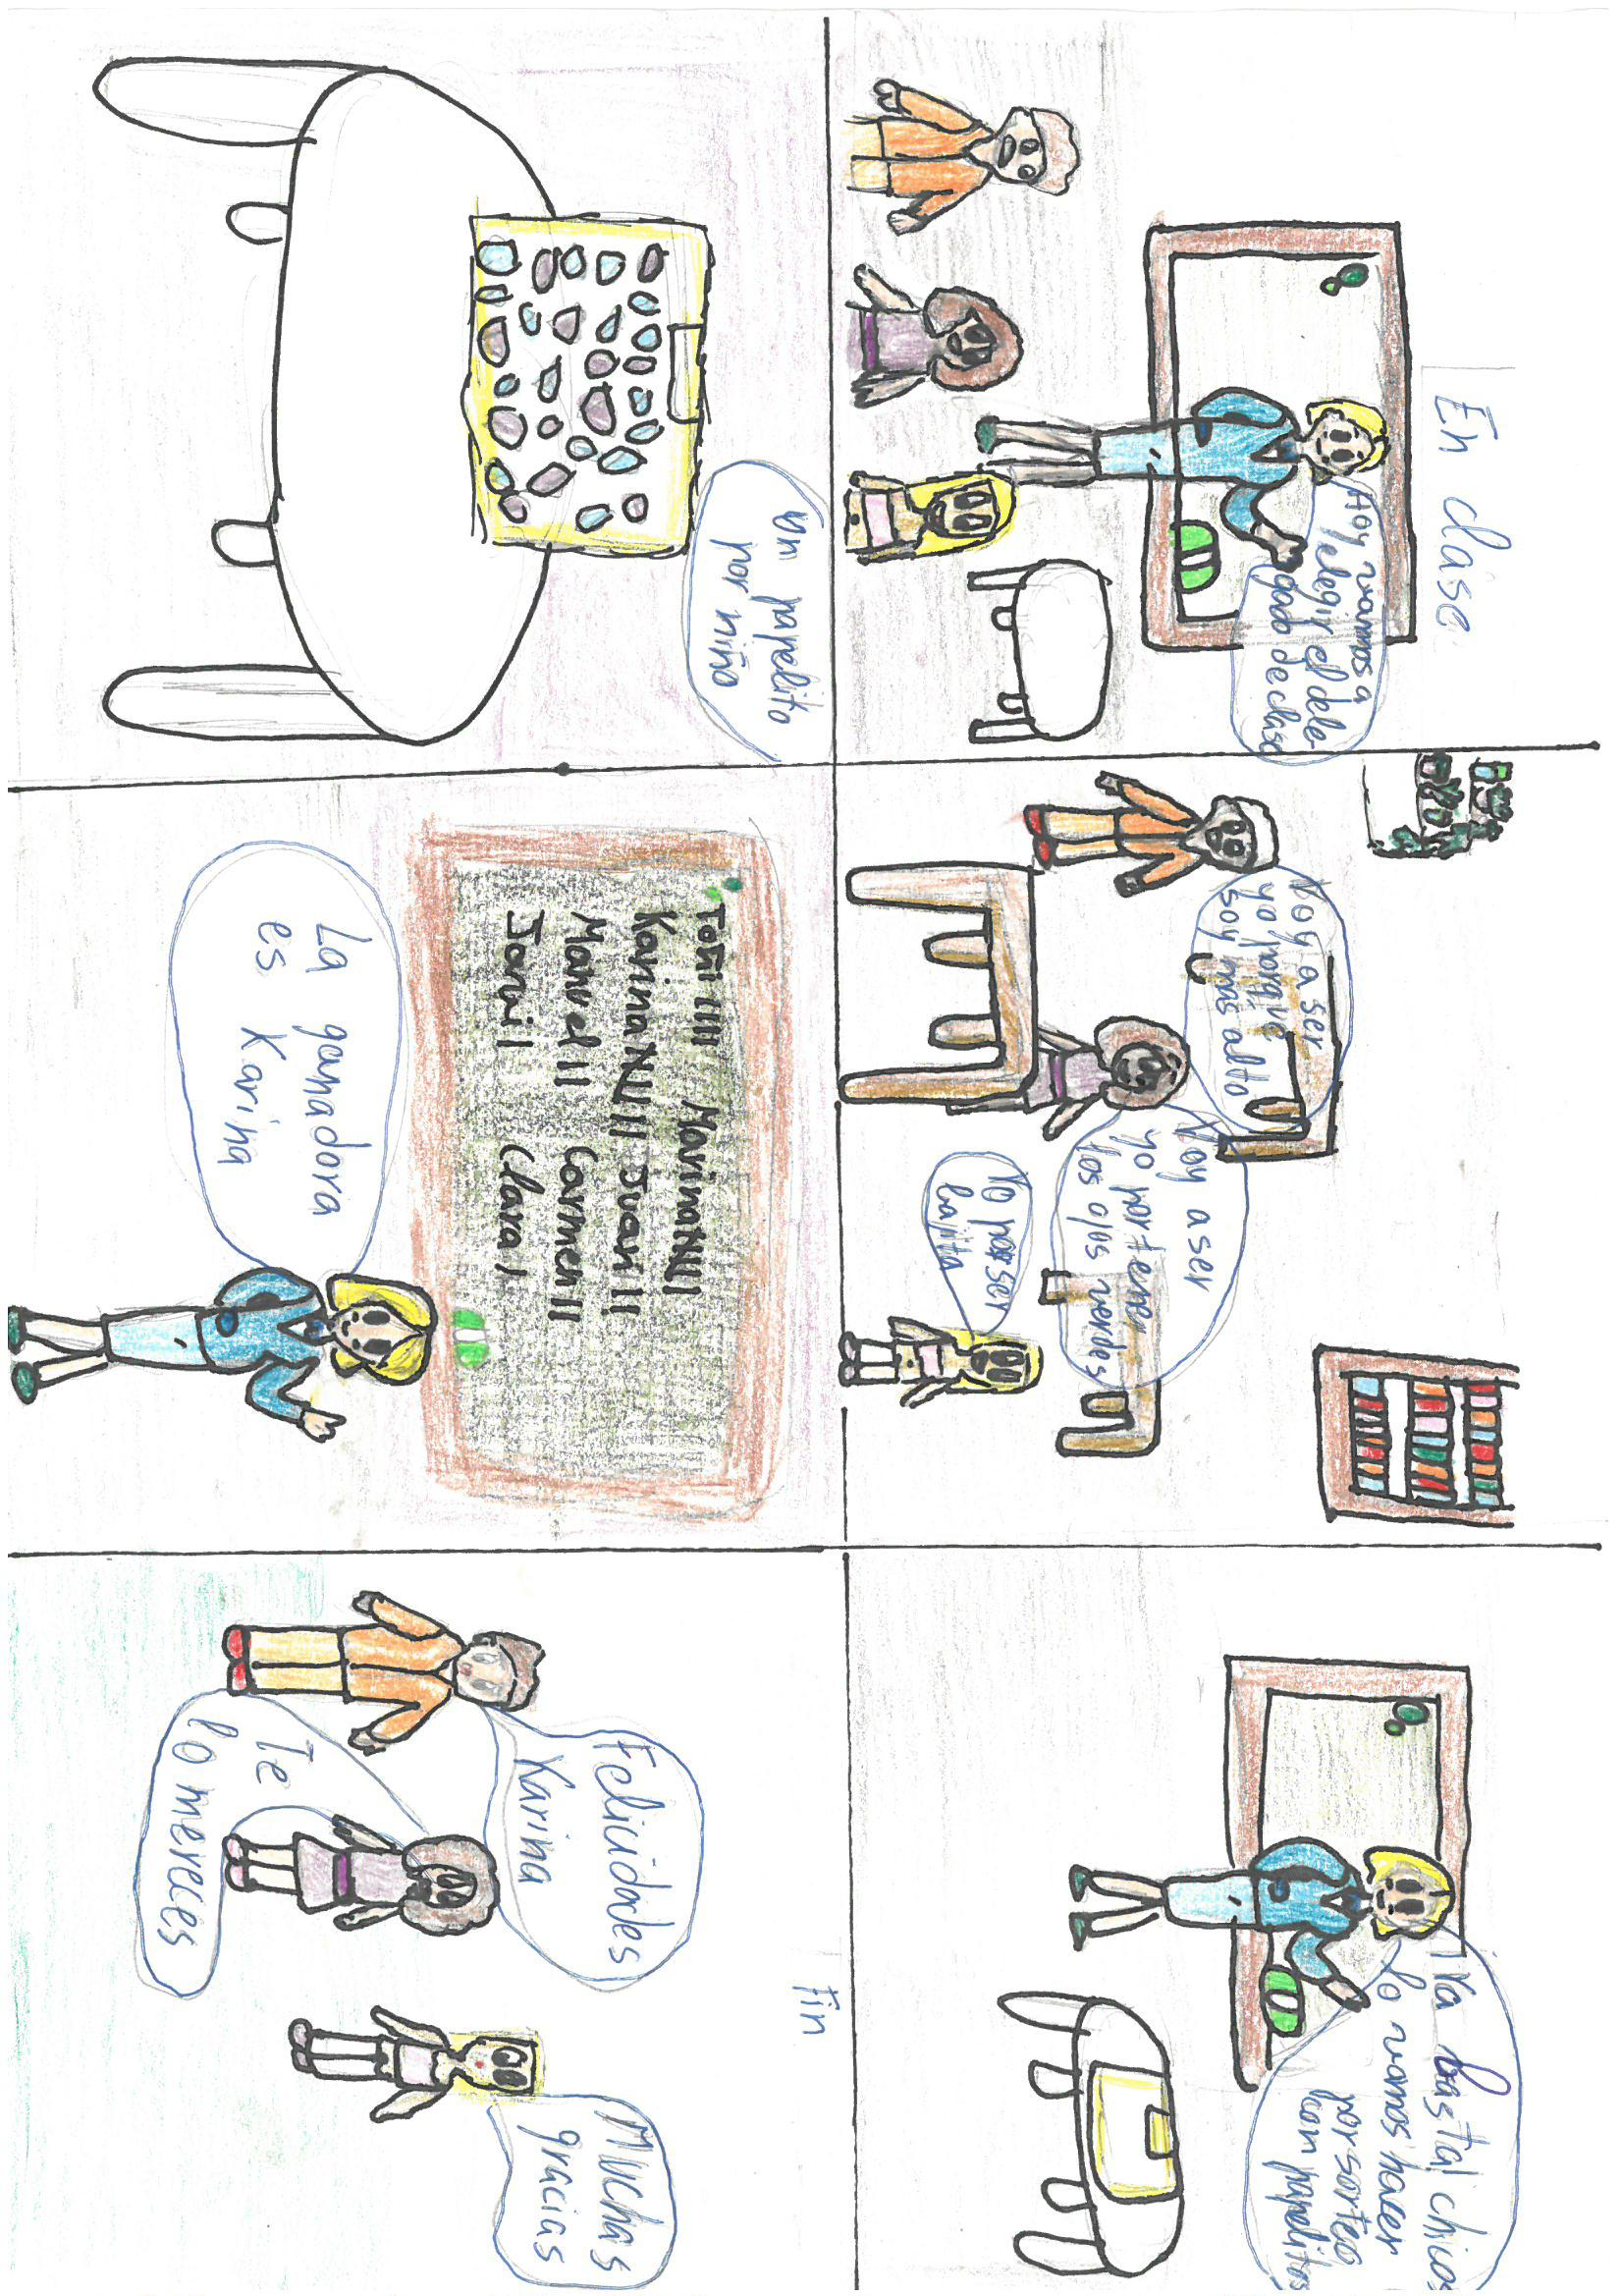 En clase
Hoy vamos a
elegir el dele-
gado de clase
Voy a ser
yo porque
soy más alto
Voy a ser
yo por tener
los ojos verdes
Yo por ser
bajita
¡Ya basta! chicos
lo vamos hacer
por sorteo
con papelitos
un papelito
por niño
Toñi IIII Marina NII
Karina NIII Juani II
Manuel II Carmen II
Javi I Clara I
La ganadora
es Karina
Felicidades
Karina
Te
lo mereces
Muchas
gracias
Fin